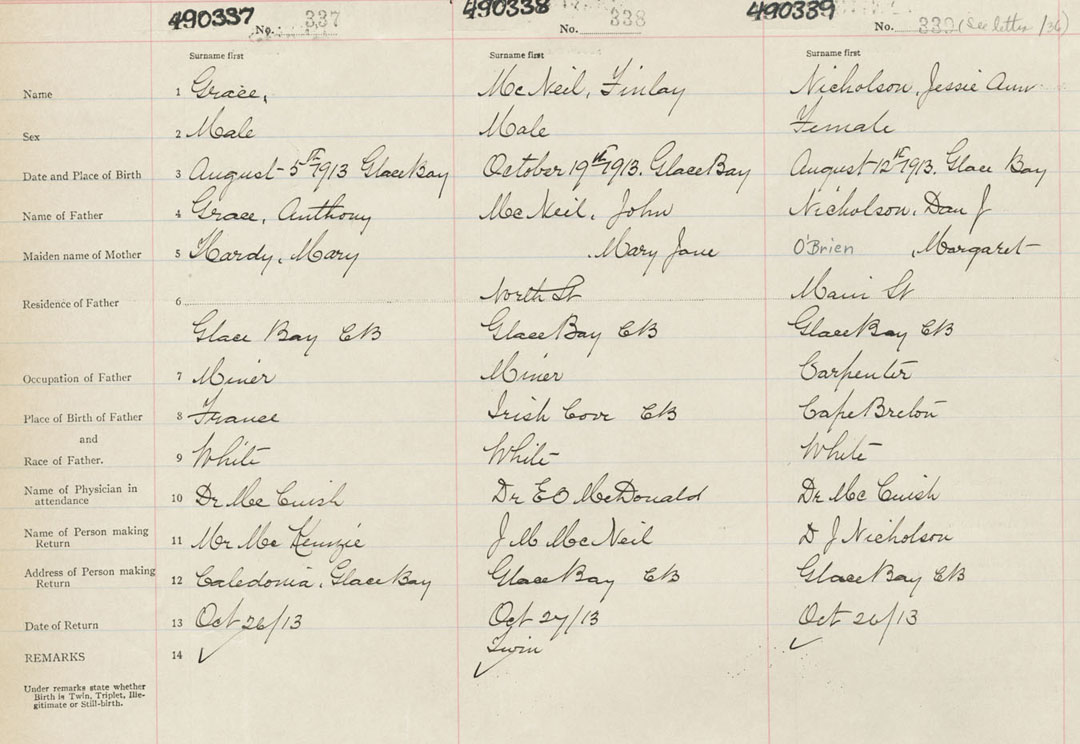 490337 490338 490339
No. 337 No. 338 No. 339 (See letter /36)
Surname first Surname first Surname first
Name 1 Grace, McNeil, Finlay Nicholson, Jessie Ann
Sex 2 Male Male Female
Date and Place of Birth 3 August 5th 1913 Glace Bay October 19th 1913. Glace Bay August 12th 1913. Glace Bay
Name of Father 4 Grace, Anthony McNeil, John Nicholson, Dan J
Maiden name of Mother 5 Hardy, Mary , Mary Jane O'Brien , Margaret
Residence of Father 6 North St Main St
Glace Bay CB Glace Bay CB Glace Bay CB
Occupation of Father 7 Miner Miner Carpenter
Place of Birth of Father 8 France Irish Cove CB Cape Breton
and
Race of Father. 9 White White White
Name of Physician in
attendance 10 Dr McCuish Dr E O McDonald Dr McCuish
Name of Person making
Return 11 Mr McKenzie J M McNeil D J Nicholson
Address of Person making
Return 12 Caledonia, Glace Bay Glace Bay CB Glace Bay CB
Date of Return 13 Oct 26/13 Oct 27/13 Oct 26/13
REMARKS 14 Twin
Under remarks state whether
Birth is Twin, Triplet, Ille-
gitimate or Still-birth.